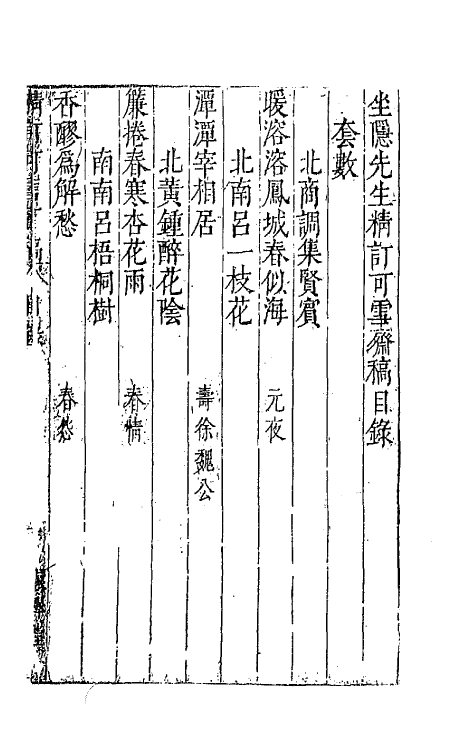 坐隱先生精訂可雪齋稿目錄
套數
北商調集賢賓
暖溶溶鳳城春似海 元夜
北南呂一枝花
潭潭宰相居 壽徐魏公
北黃鍾醉花陰
簾捲春寒杏花雨 春情
南南呂梧桐樹
香醪為解愁 春愁